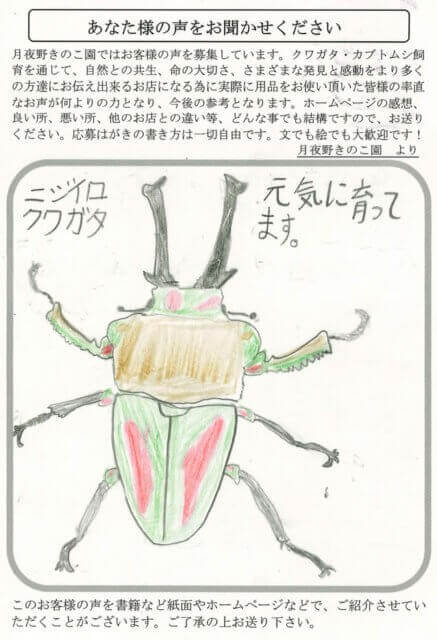 あなた様の声をお聞かせください
月夜野きのこ園ではお客様の声を募集しています。クワガタ・カブトムシ飼
育を通じて、自然との共生、命の大切さ、さまざまな発見と感動をより多く
の方達にお伝え出来るお店になる為に実際に用品をお使い頂いた皆様の率直
なお声が何よりの力となり、今後の参考となります。ホームページの感想、
良い所、悪い所、他のお店との違い等、どんな事でも結構ですので、お送り
ください。応募はがきの書き方は一切自由です。文でも絵でも大歓迎です！
月夜野きのこ園　より
ニジイロ
クワガタ
元気に育って
ます。
このお客様の声を書籍など紙面やホームページなどで、ご紹介させてい
ただくことがございます。ご了承の上お送り下さい。